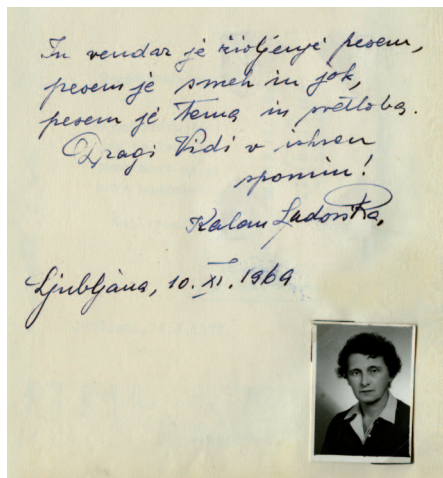 In vendar je življenje pesem,
pesem je smeh in jok,
pesem je tema in svetloba.
Dragi Vidi v iskren
spomin!
Kalan
Ljubljana, 10. XI. 1969